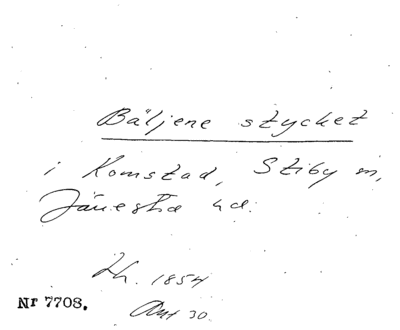 Bäljene stycket
i Komstad, Stiby m,
Järestad hd.
Kh. 1854
Ant 30
Nr 7708.